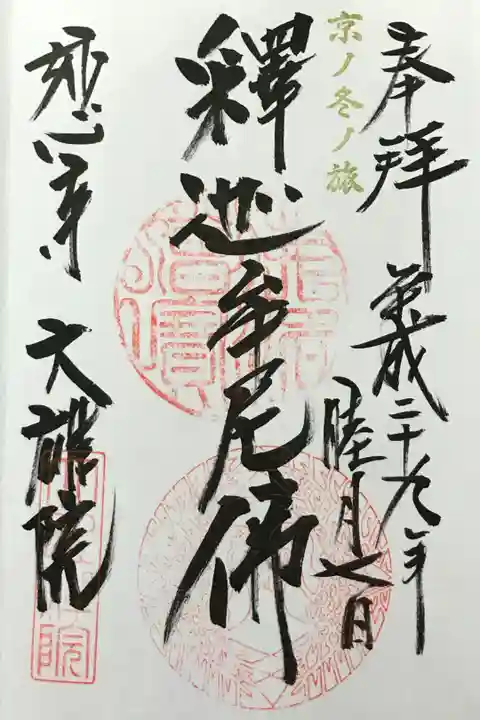 奉拝 平成二十九年
睦月七日
京ノ冬ノ旅
釋迦牟尼佛
妙心 大 院